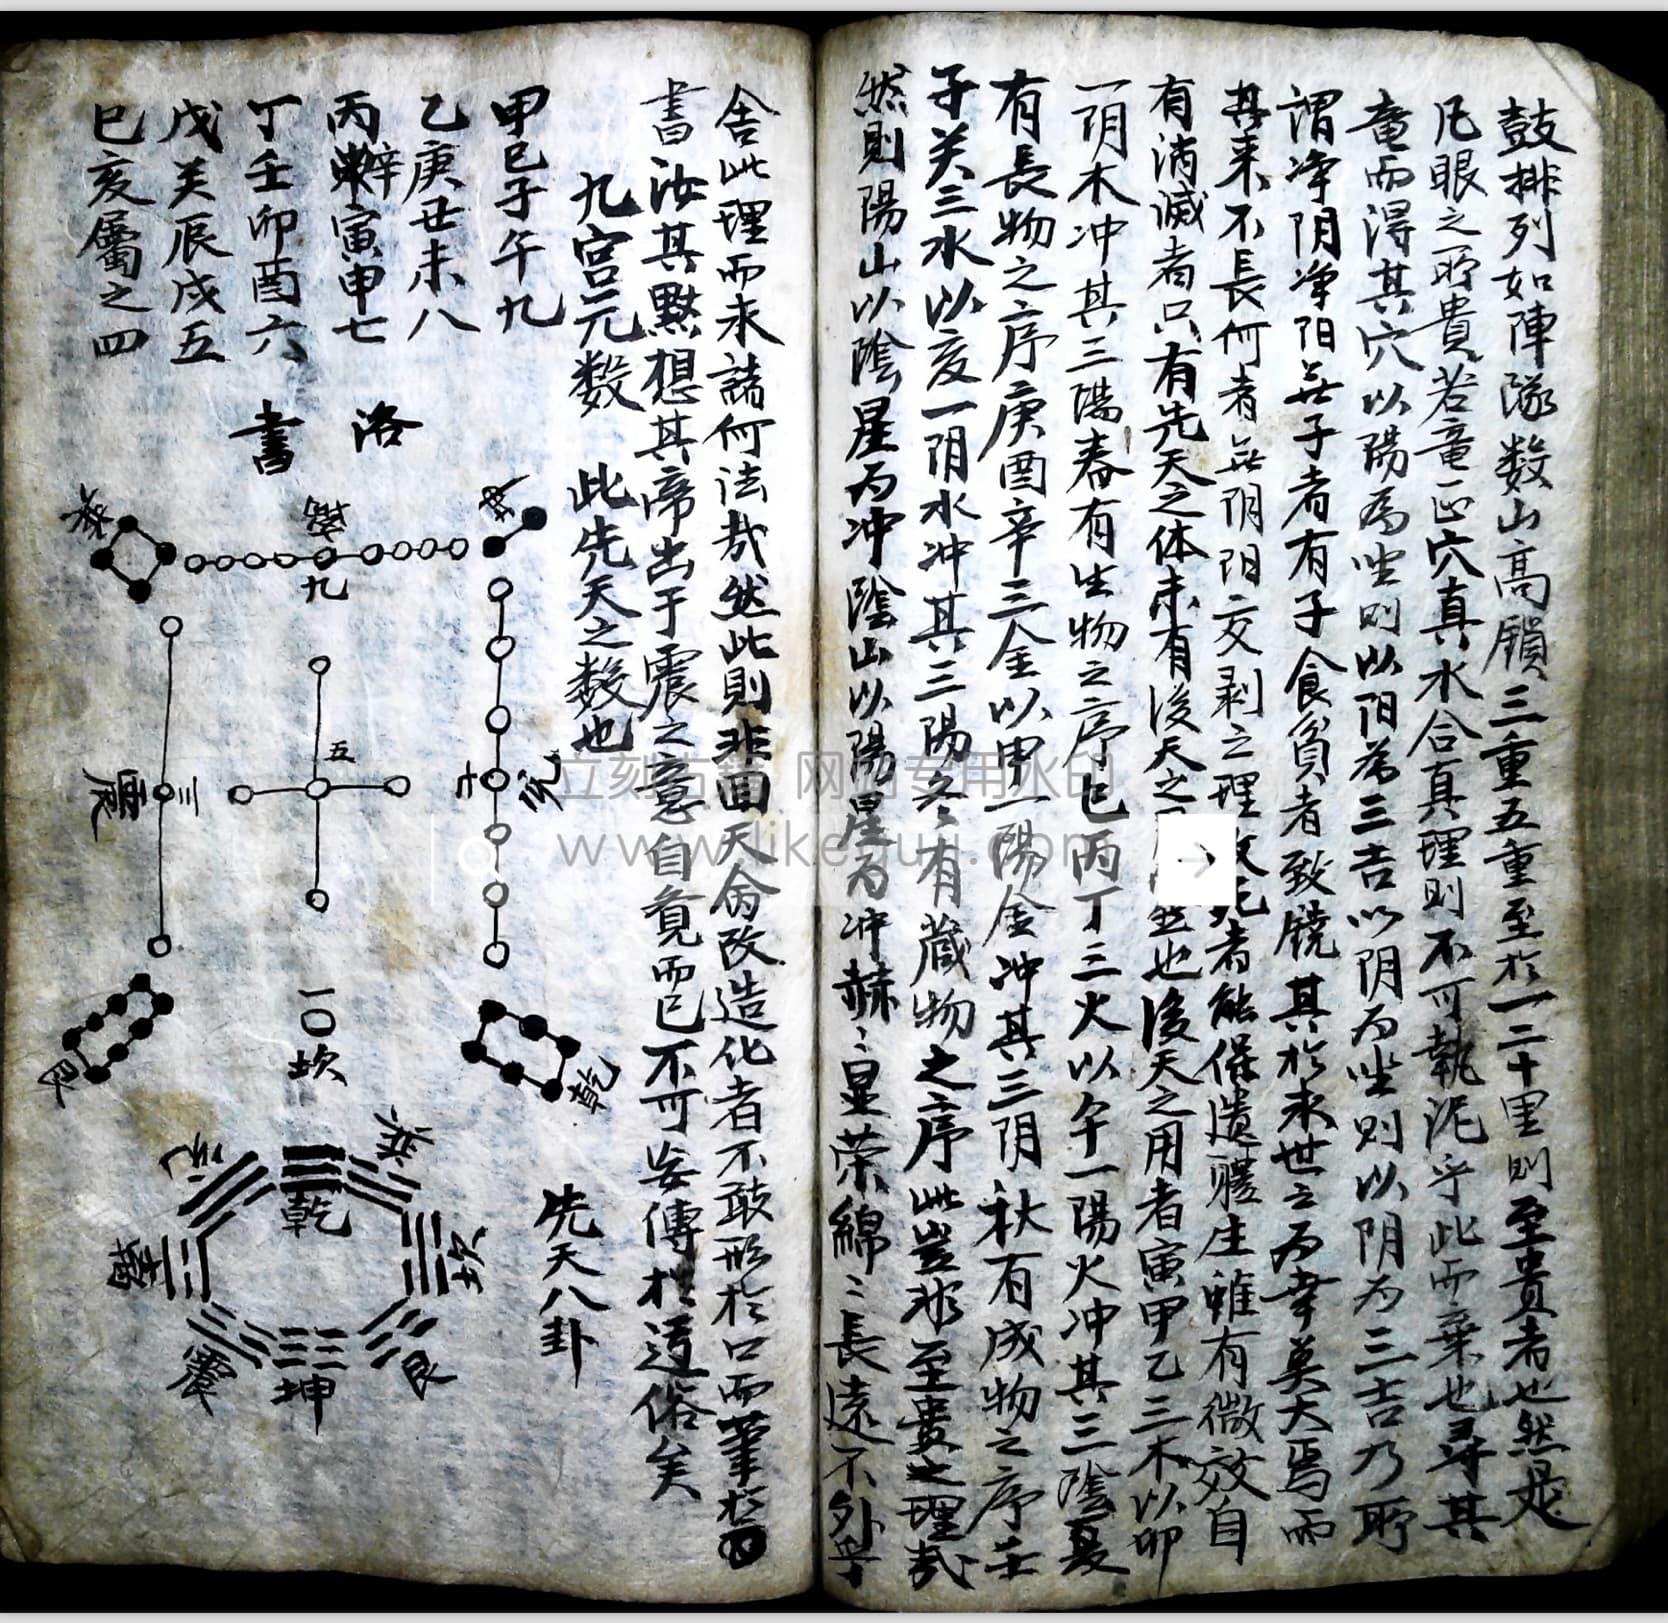 鼓排列如陣隊数山高鎖三重五重至於一二十里則至貴者也然是
凡眼之所貴若竜正穴真水合真理則不可執泥乎此而棄也尋其
竜而得其穴以陽為坐則以阳為三吉以阴为坐則以阴为三吉乃所
謂净阴净阳無子者有子食貧者致饒其於末世之为幸莫大焉而
其来不長何者無阴阳交剥之理故死者能保遺軆生雖有微效自
有消滅者只有先天之体未有後天之也後天之用者寅甲乙三木以卯
一阴木冲其三陽春有生物之序巳丙丁三火以午一陽火冲其三陰夏
有長物之序庚酉辛三金以申一陽金冲其三阴秋有成物之序壬
子关三水以亥一阴水冲其三陽冬有藏物之序此豈非至貴之理哉
然則陽山以陰星为冲陰山以陽星为冲赫〻显荣綿〻長遠不外乎
舍此理而求諸何法哉然此則非面天命改造化者不敢形於口而筆於
書汝其黙想其帝出于震之意自覔而已不可妄傳於俗矣
九宮元数 此先天之数也
甲巳子午九
乙庚丑未八
丙辛寅申七
丁壬卯酉六
戊关辰戌五
巳亥屬之四
洛書
巽
离
九
坤
震
三
五
七
兑
艮
一〇坎
乾
先天八卦
兑
乾
巽
离
坎
震
坤
艮
立刻古籍 网站专用水印
www.likeguji.com
→